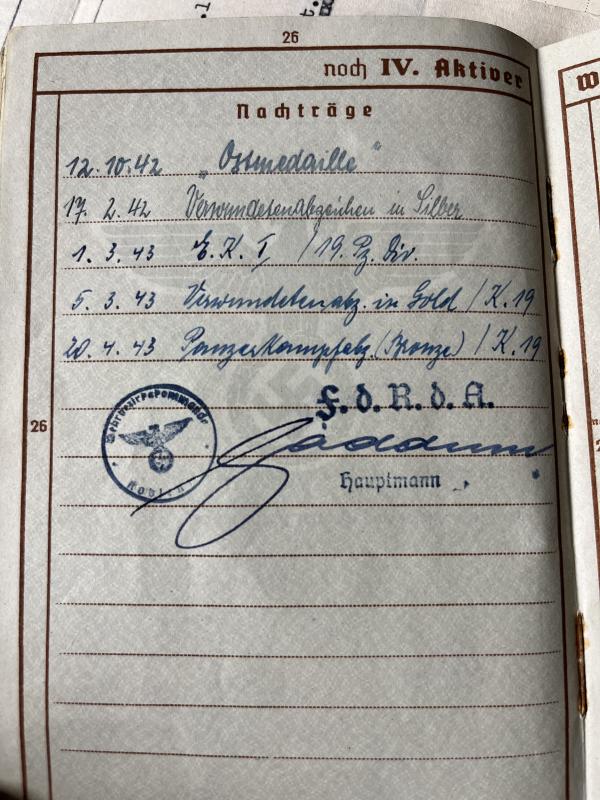 26
noch IV. Aktiver
W
Nachträge
12.10.42 „Ostmedaille"
17. 2.42 Verwundetenabzeichen in Silber
1. 3.43 E.K.I /19. Pz. Div.
5. 3.43 Verwundetenabz. in Gold / K.19
20. 4.43 Panzerkampfabz. (Bronze) / K.19
26
F.d.R.d.A.
Wehrbezirkskommando
Koblenz
Hauptmann